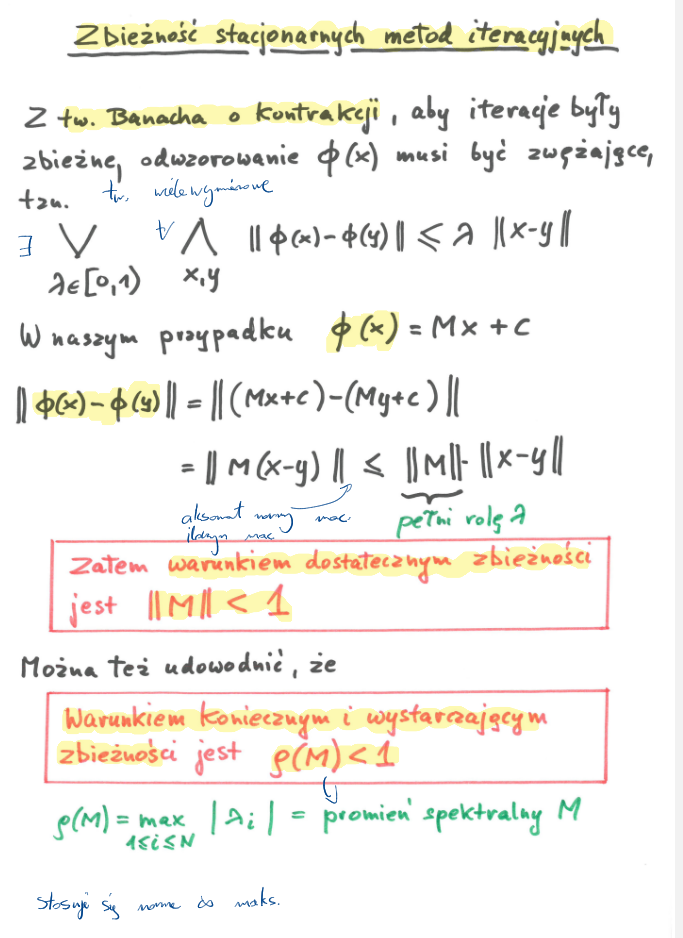 Zbieżność stacjonarnych metod iteracyjnych
Z tw. Banacha o kontrakcji, aby iteracje były
zbieżne, odwzorowanie ϕ(x) musi być zwężające,
tzn.
tw. wielowymiarowe
∃ ⋁ ∀ ⋀ ‖ϕ(x)-ϕ(y)‖ ≤ λ ‖x-y‖
λ∈[0,1) x,y
W naszym przypadku ϕ(x) = Mx + c
‖ϕ(x)-ϕ(y)‖ = ‖(Mx+c)-(My+c)‖
= ‖M(x-y)‖ ≤ ‖M‖·‖x-y‖
aksomat normy mac.
pełni rolę λ
mac.
Zatem warunkiem dostatecznym zbieżności
jest ‖M‖ < 1
Można też udowodnić, że
Warunkiem koniecznym i wystarczającym
zbieżności jest ρ(M)<1
ρ(M) = max |λi| = promień spektralny M
1≤i≤N
Stosuje się norme do maks.